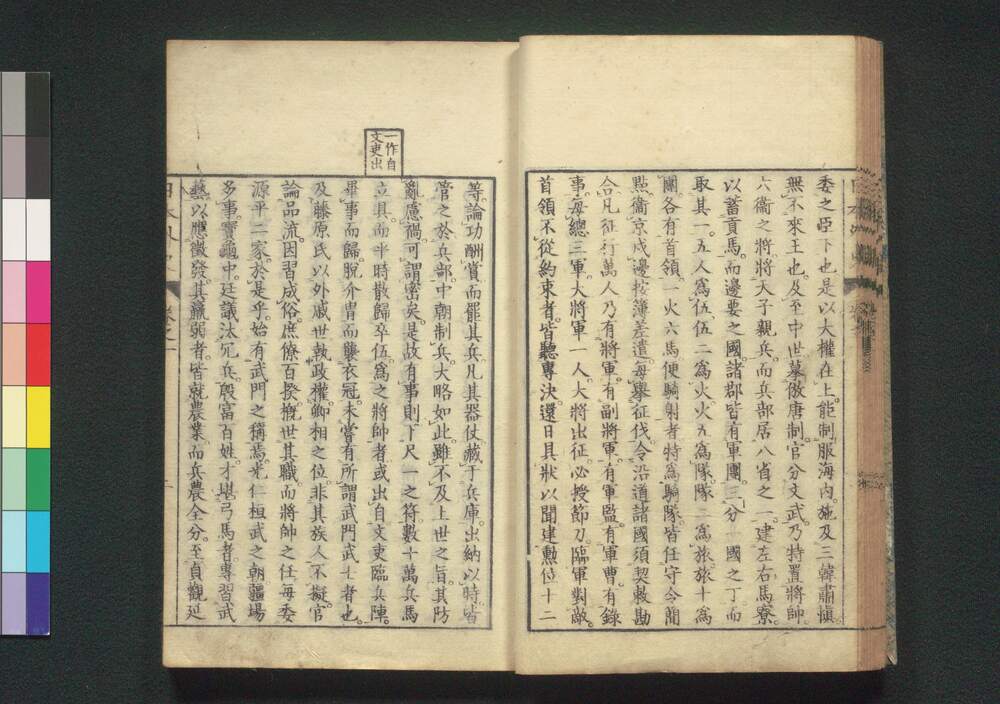 委之臣下也是以大權在上能制服海内施及三韓肅愼
無不來王也及至中世摹倣唐制官分文武乃特置將帥
六衞之將將天子親兵而兵部居八省之一建左右馬寮
以蓄貢馬而邊要之國諸郡皆有軍團三分一國之丁而
取其一五人爲伍伍二爲火火五爲隊隊二爲旅旅十爲
團各有首領一火六馬便騎射者特爲騎隊皆任守令簡
點衞京戍邊按簿差遣毎擧征伐令沿道諸國須契敕勘
合凡征行萬人乃有將軍有副將軍有軍監有軍曹有錄
事毎總三軍大將軍一人大將出征必授節刀臨軍對敵
首領不從約束者皆聽專決還日具狀以聞建勲位十二
一作自
文吏出
等論功酬賞而罷其兵凡其器仗藏于兵庫出納以時皆
管之於兵部中朝制兵大略如此雖不及上世之旨其防
亂慮禍可謂密矣是故有事則下尺一之符數十萬兵馬
立具而半時散歸卒伍爲之將帥者或出自文吏臨兵陣
畢事而歸脫介冑而襲衣冠未嘗有所謂武門武士者也
及藤原氏以外戚世執政權卿相之位非其族人不擬官
論品流因習成俗庶僚百揆槪世其職而將帥之任毎委
源平二家於是乎始有武門之稱焉光仁桓武之朝疆場
多事寶龜中廷議汰冗兵殷富百姓才堪弓馬者專習武
藝以應徵發其羸弱者皆就農業而兵農全分至貞觀延